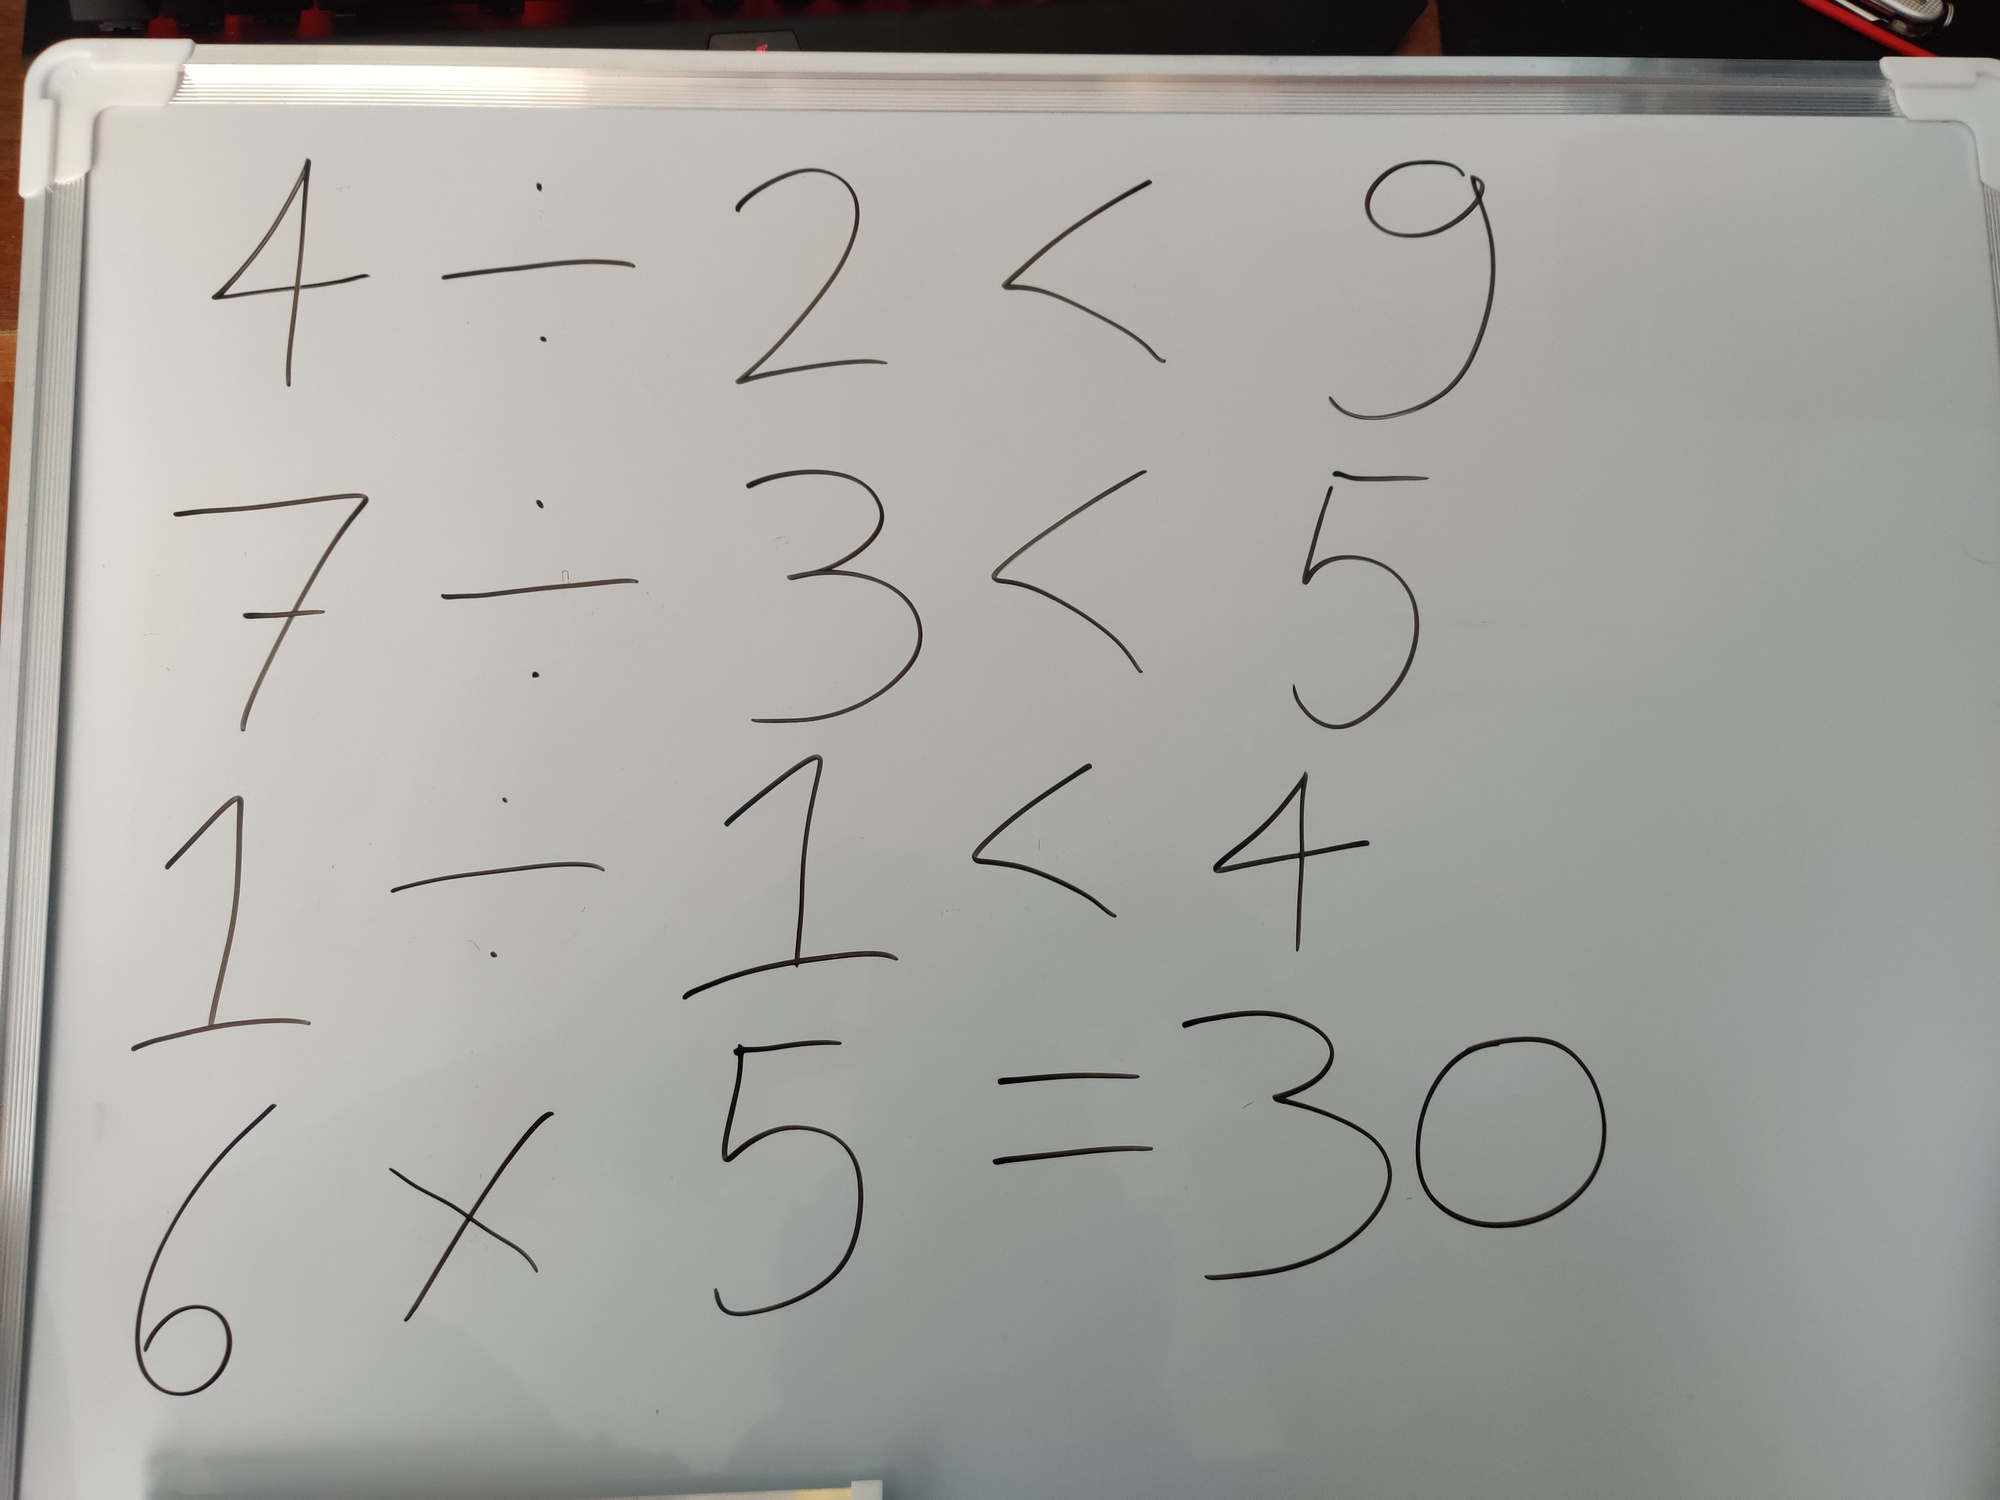 4 ÷ 2 < 9
7 ÷ 3 < 5
1 ÷ 1 < 4
6 × 5 = 30